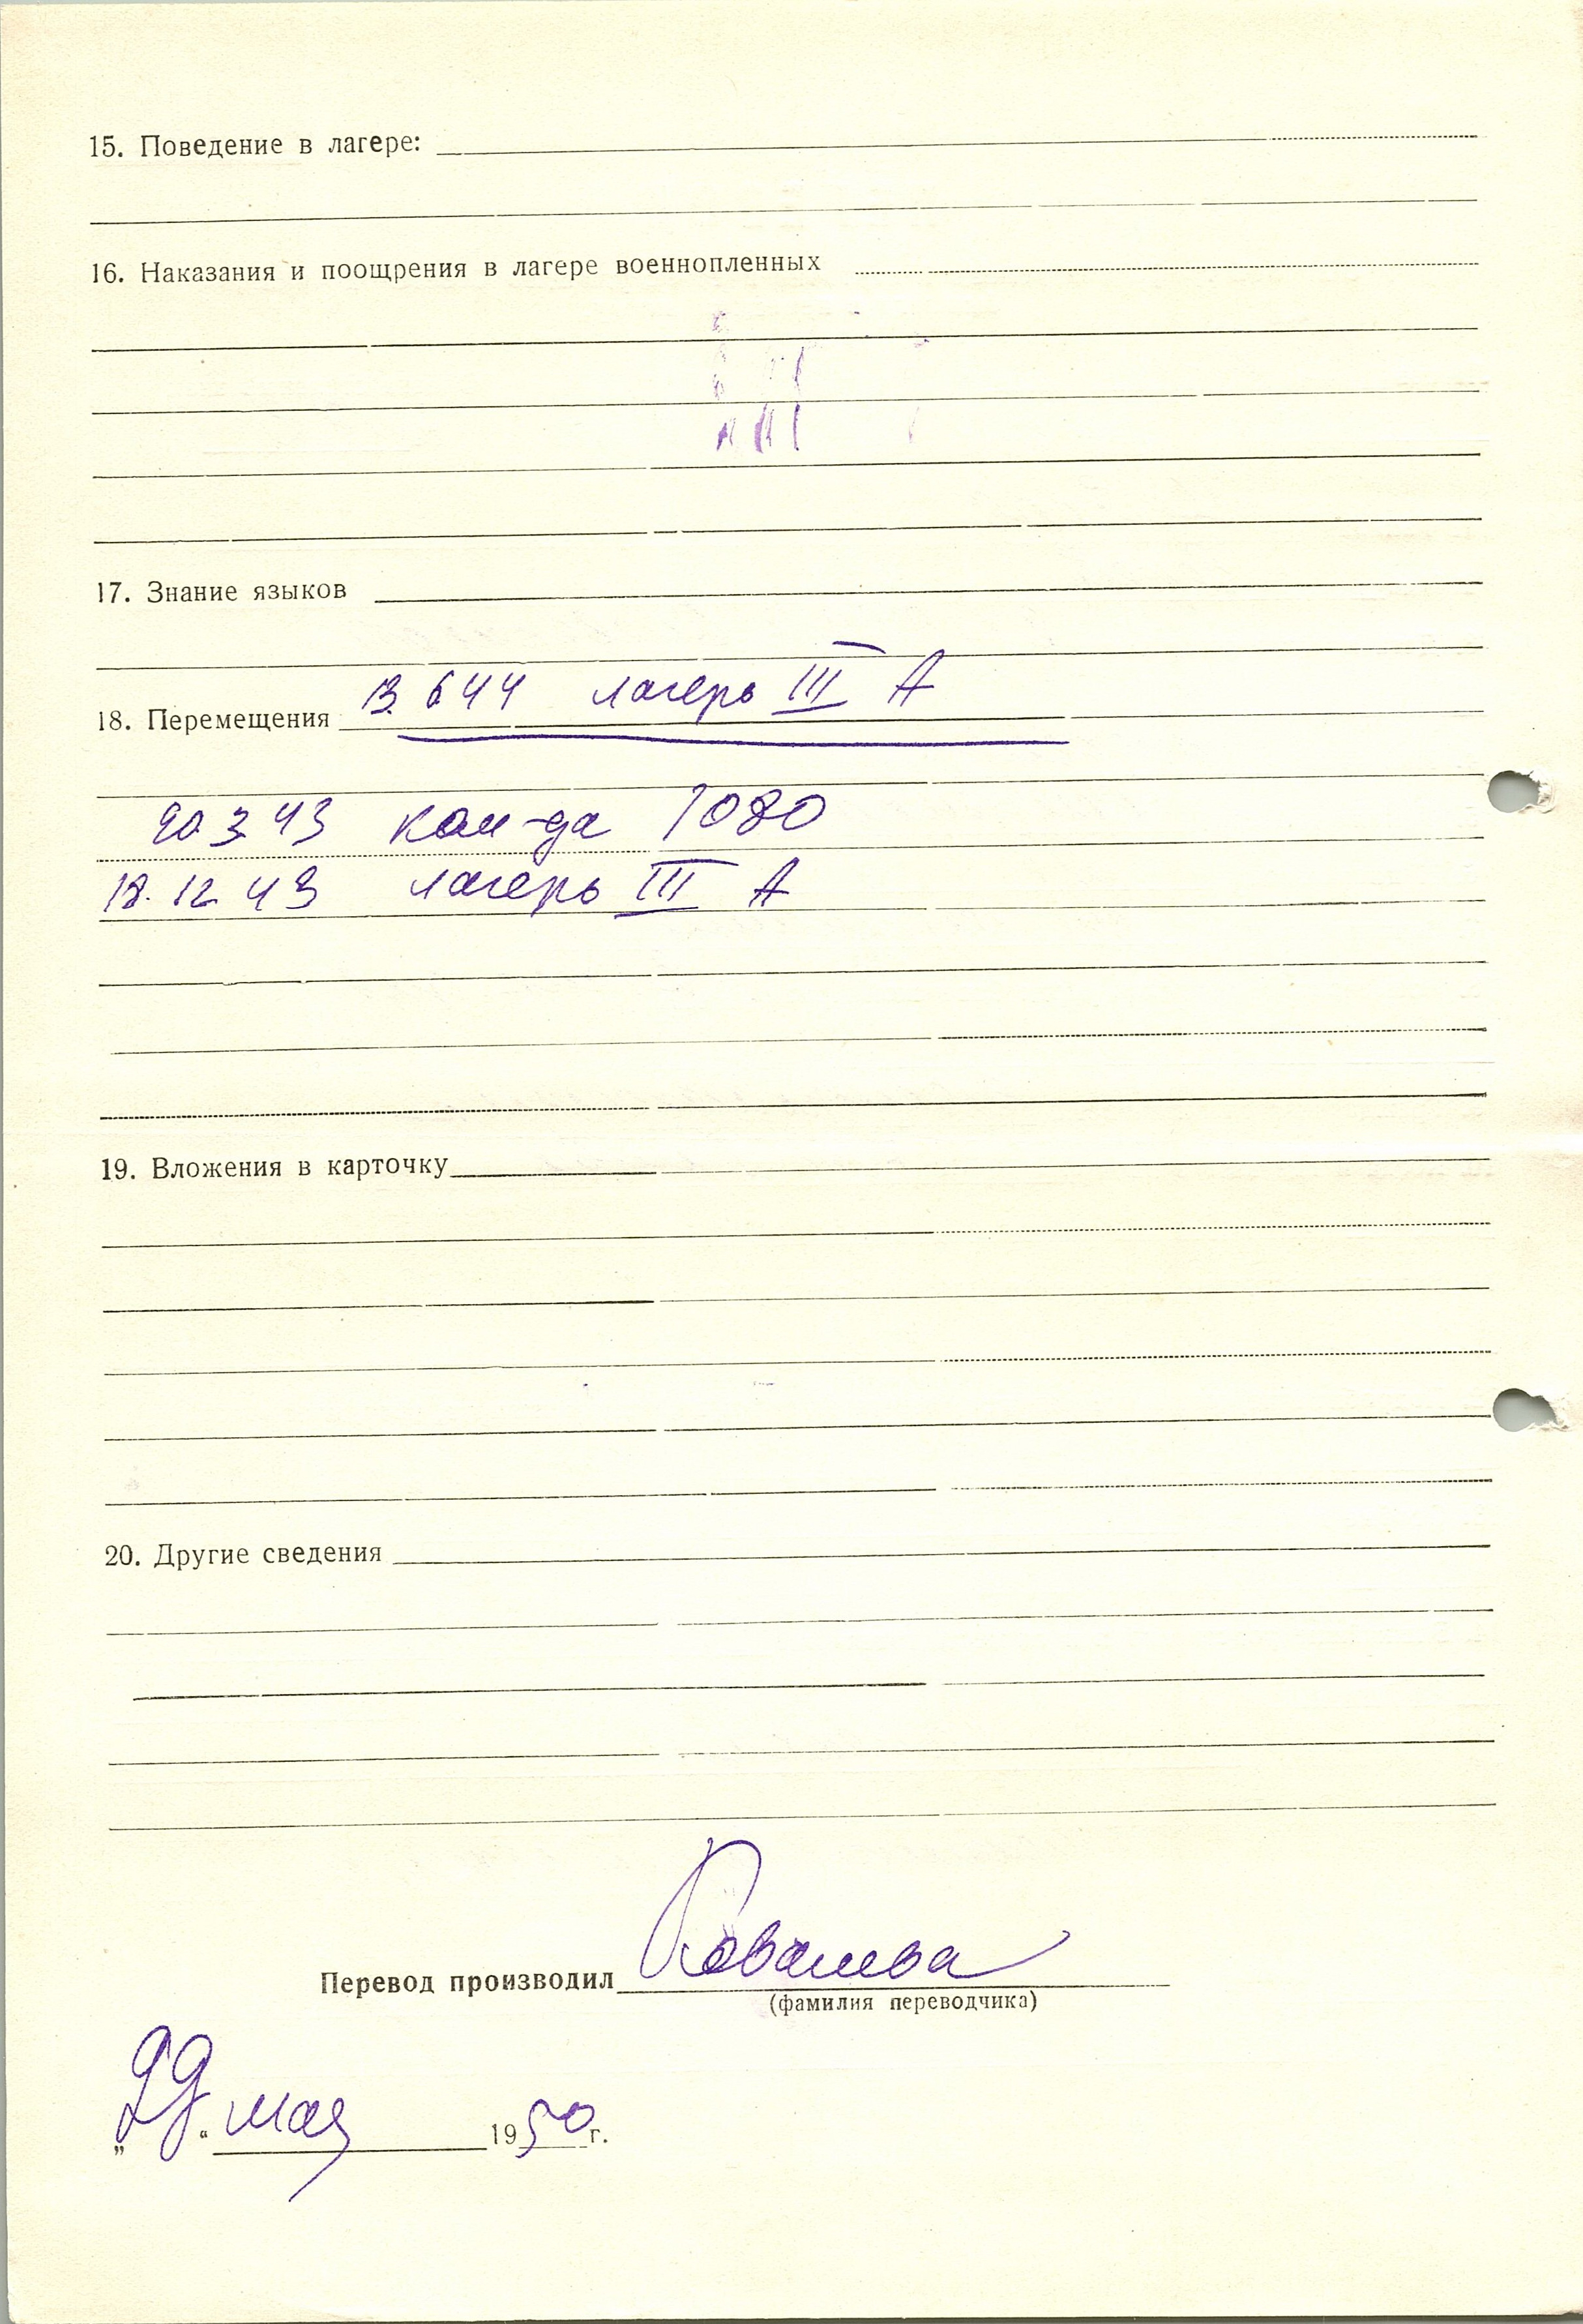 15. Поведение в лагере:
16. Наказания и поощрения в лагере военнопленных
17. Знание языков
13. 6 44 лагерь III А
18. Перемещения
20 3 43 ком-да 1080
18. 12 43 лагерь III А
19. Вложения в карточку
20. Другие сведения
Перевод производил Ковалева
(фамилия переводчика)
„29“ мая 1950 г.